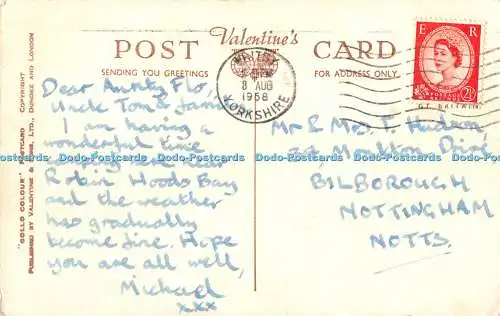 POST Valentine's CARD
SENDING YOU GREETINGS
FOR ADDRESS ONLY
"COLLO COLOUR" POSTCARD COPYRIGHT
PUBLISHED BY VALENTINE & SONS, LTD., DUNDEE AND LONDON
WHITBY
8 AUG
1958
YORKSHIRE
E R
POSTAGE REVENUE
2½D
GT. BRITAIN
Dear Aunty Flo,
Uncle Tom &
I am having a
wonderful time
Robin Hoods Bay
and the weather
has gradually
become fine. Hope
you are all well,
Michael
xxx
Mr & Mrs T. Hudson,
Moulton Drive
BILBOROUGH
NOTTINGHAM
NOTTS.
Dodo-Postcards Dodo-Postcards Dodo-Postcards Dodo-Postcards Dodo-Postcards Dodo-Postcards